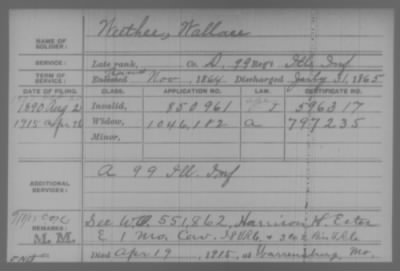 NAME OF SOLDIER: Weethee, Wallace
SERVICE: Late rank, Co. D, 99 Reg't Ills Inf
TERM OF SERVICE: Enlisted Nov, 1864. Discharged July 31, 1865
DATE OF FILING. CLASS. APPLICATION NO. LAW. CERTIFICATE NO.
1890 Aug 2 Invalid, 850,961 596317
1915 Apr 26 Widow, 1046,182 a 797235
Minor,
ADDITIONAL SERVICES: A 99 Ill. Inf
REMARKS: See W.O. 551,862, Harrison H.
M. M. E 1 Mo. Cav.
Died Apr 19, 1915, at Warrensburg Mo.